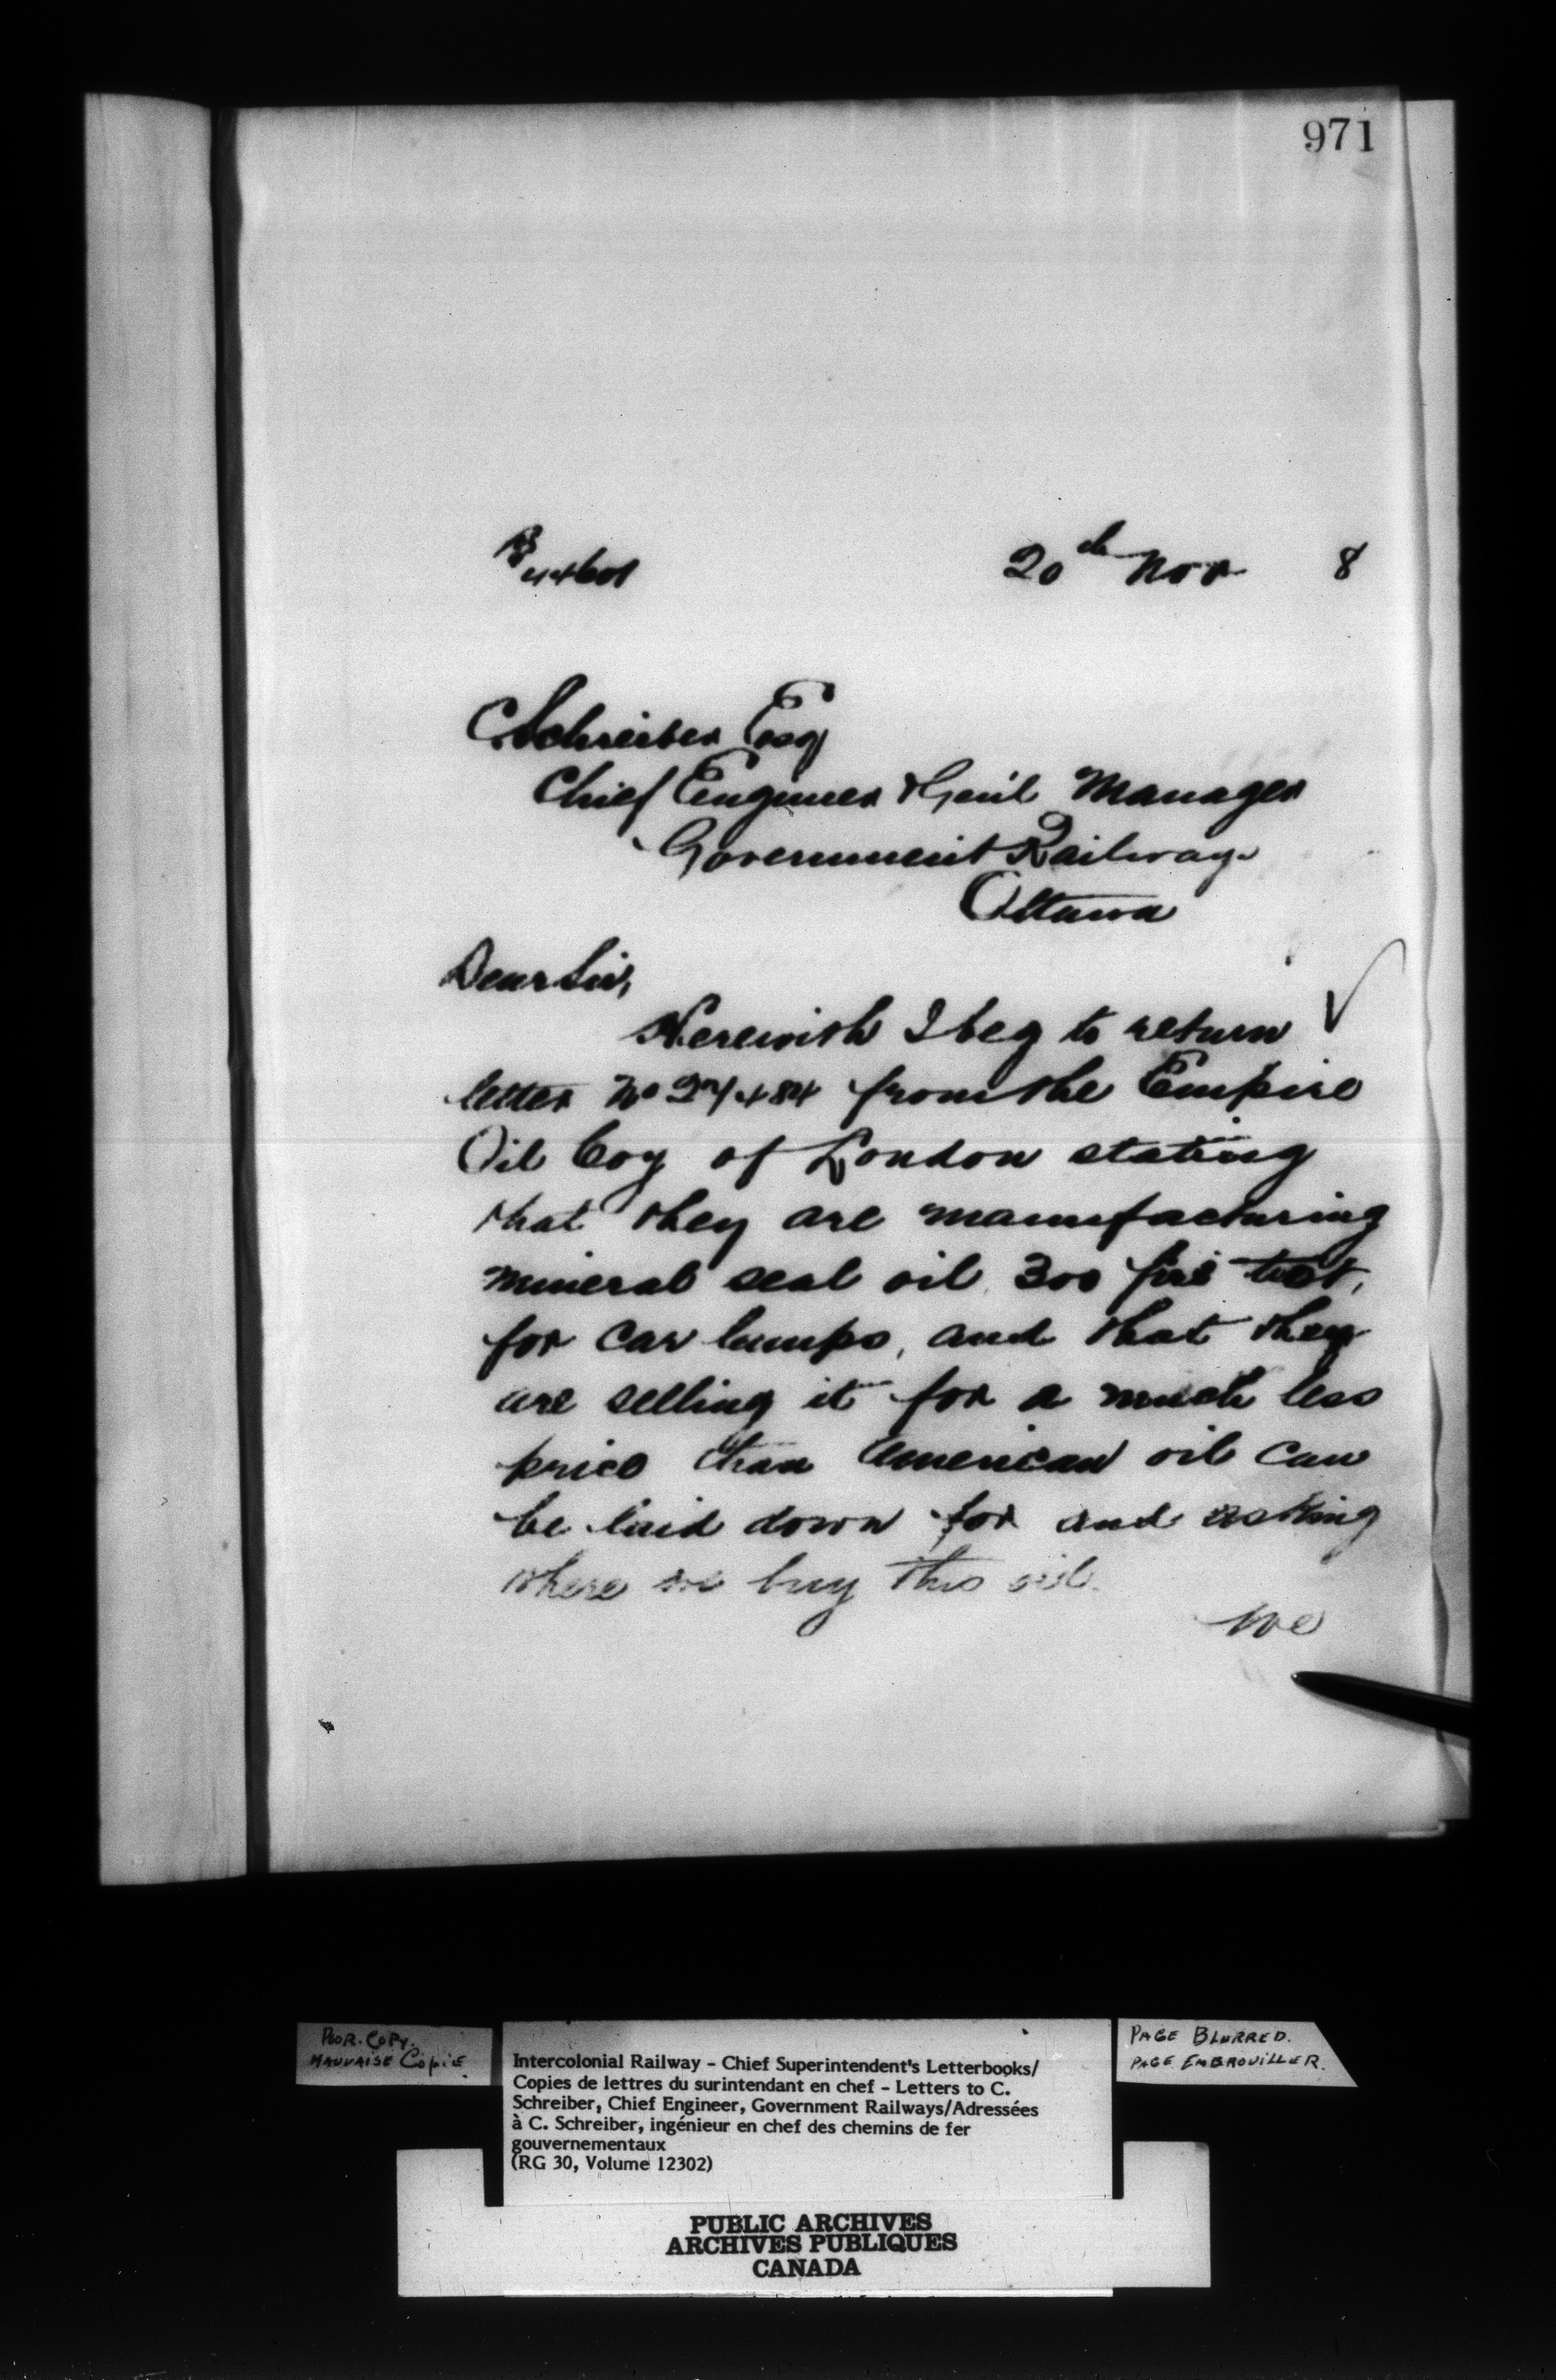 971
20th Nov 8
C Schreiber Esq
Chief Engineer & Gen'l Manager
Government Railways
Ottawa
Dear Sir,
Herewith I beg to return
letter No 27484 from the Empire
Oil Coy of London stating
that they are manufacturing
mineral seal oil, 300 fire test,
for car lamps, and that they
are selling it for a much less
price than American oil can
be laid down for and asking
where we buy this oil.
We
POOR. COPY.
MAUVAISE COPIE
Intercolonial Railway - Chief Superintendent's Letterbooks/
Copies de lettres du surintendant en chef - Letters to C.
Schreiber, Chief Engineer, Government Railways/Adressées
à C. Schreiber, ingénieur en chef des chemins de fer
gouvernementaux
(RG 30, Volume 12302)
PAGE BLURRED.
PAGE EMBROUILLER.
PUBLIC ARCHIVES
ARCHIVES PUBLIQUES
CANADA